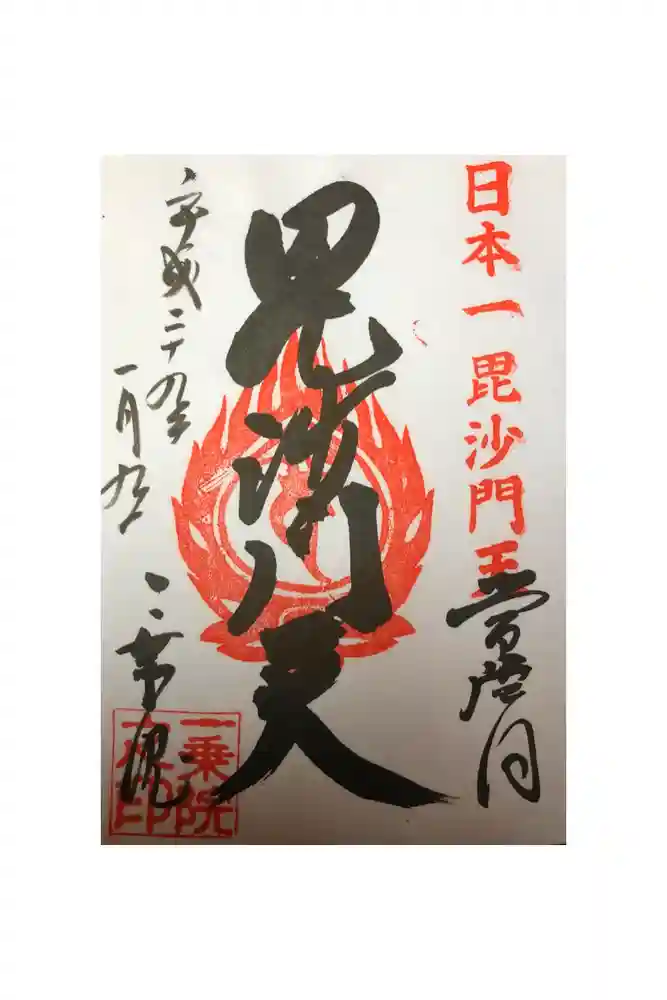 日本一毘沙門王
常陸国
毘沙門天
平成二十九年
一月九日
一乗院
一乗院
之印